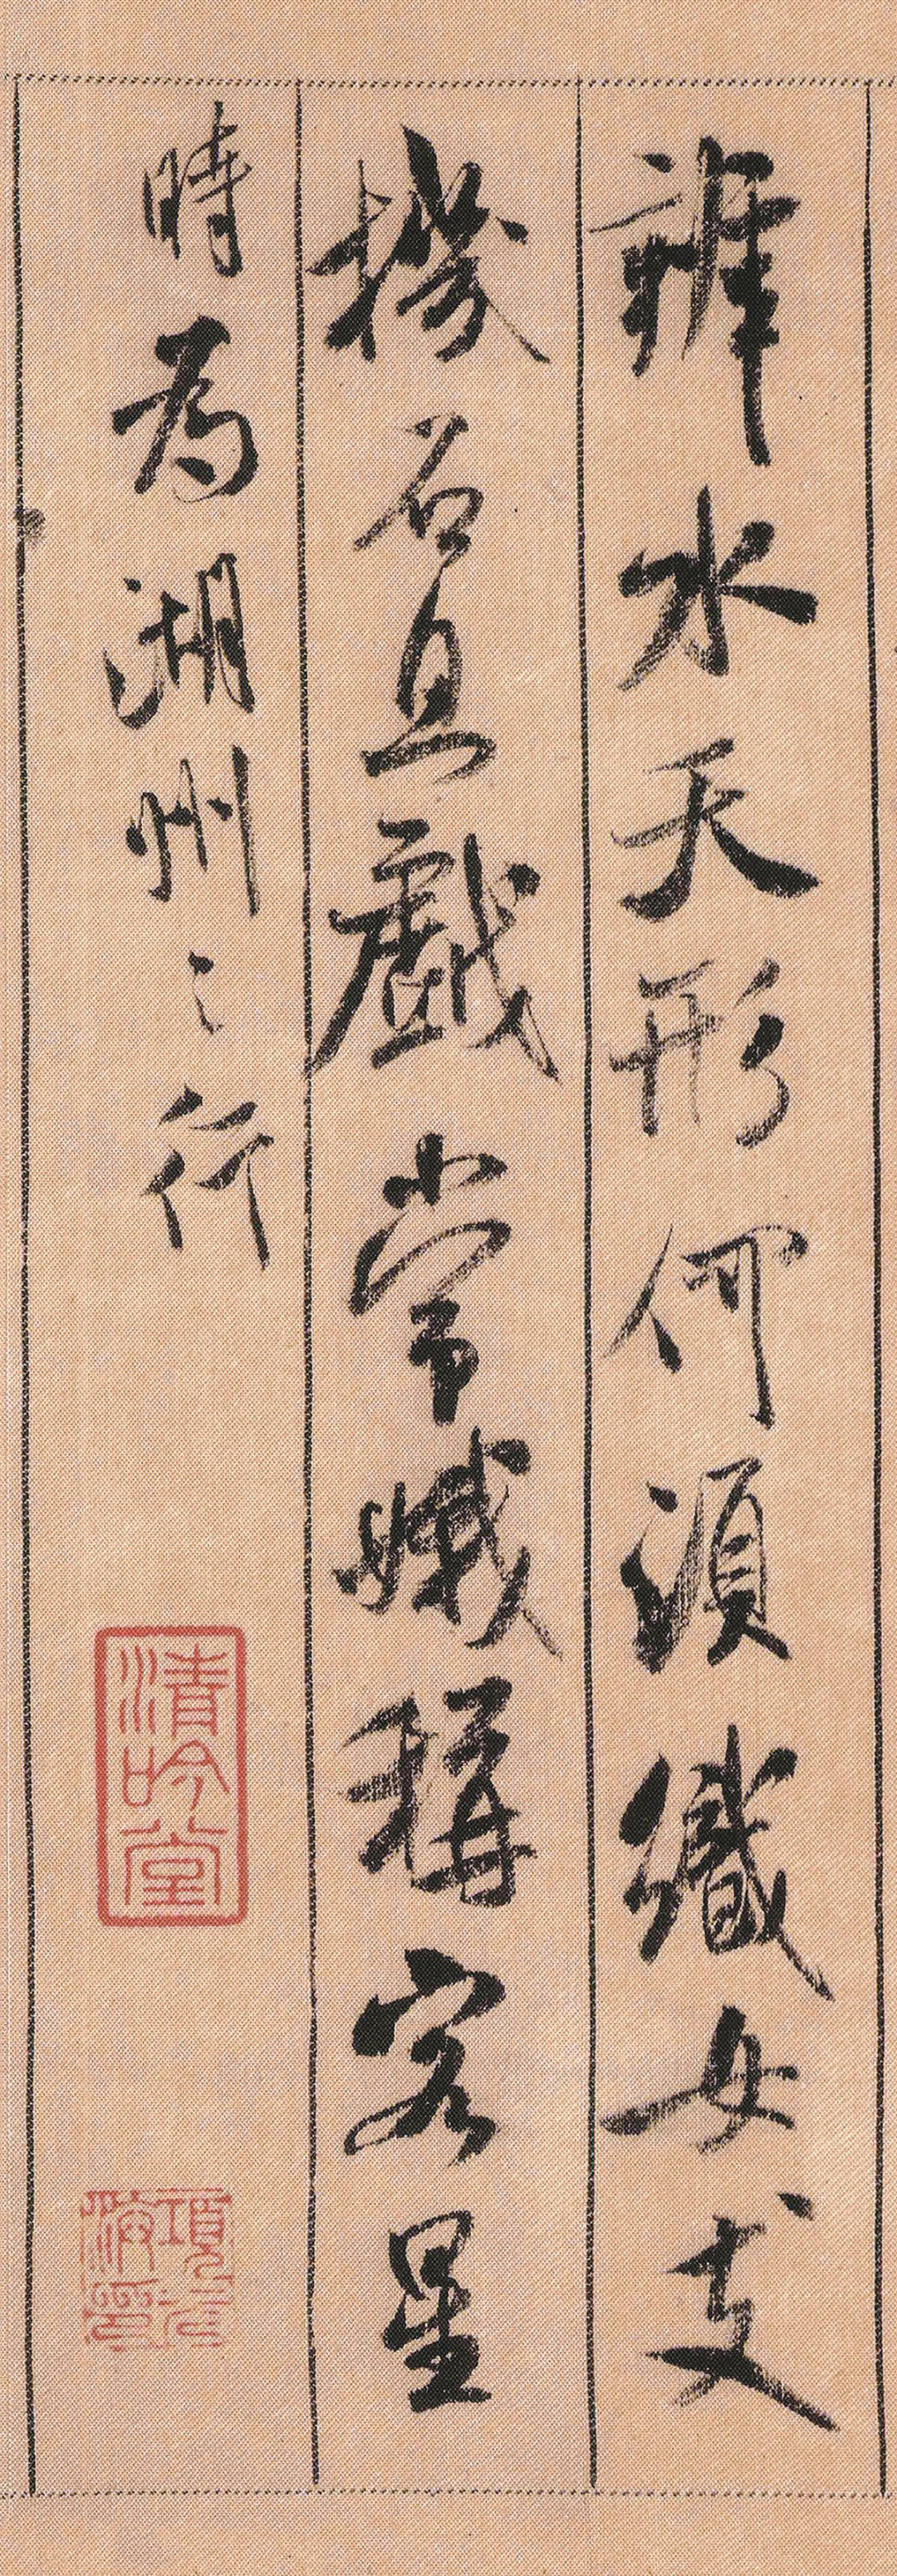 辨水天形何須織女支
機石且戲常娥稱客星
時為湖州之行
清吟堂